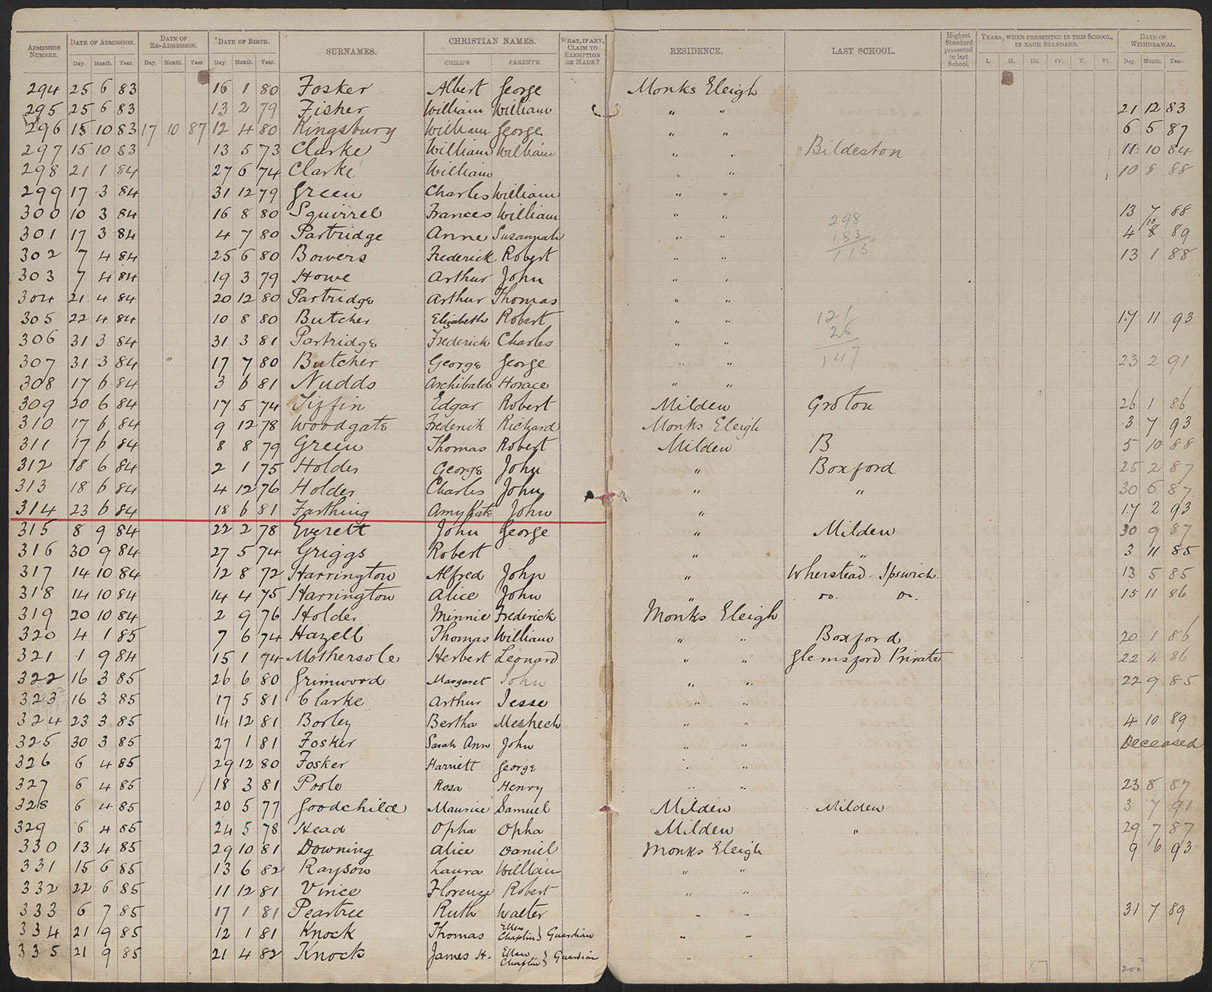 ADMISSION NUMBER. DATE OF ADMISSION. DATE OF RE-ADMISSION. DATE OF BIRTH. SURNAMES. CHRISTIAN NAMES. WHAT, IF ANY, CLAIM TO EXEMPTION OR MADE? RESIDENCE. LAST SCHOOL. Highest Standard presented in last School. YEARS, WHEN PRESENTED IN THIS SCHOOL, IN EACH STANDARD. DATE OF WITHDRAWAL.
Day. Month. Year. Day. Month. Year. Day. Month. Year. CHILD'S. PARENT'S. I. II. III. IV. V. VI. Day. Month Year.
294 25 6 83 16 1 80 Fosker Albert George Monks Eleigh
295 25 6 83 13 2 79 Fisher William William " " 21 12 83
296 15 10 83 17 10 87 12 4 80 Kingsbury William George " " 6 5 87
297 15 10 83 13 5 73 Clarke William William " " Bildeston 11 10 84
298 21 1 84 27 6 74 Clarke William " " 10 8 88
299 17 3 84 31 12 79 Green Charles William " "
300 10 3 84 16 8 80 Squirrel Frances William " " 298 13 7 88
301 17 3 84 4 7 80 Partridge Anne Susannah " " 183 4 8 89
302 7 4 84 25 6 80 Bowers Frederick Robert " " 115 13 1 88
303 7 4 84 19 3 79 Howe Arthur John " "
304 21 4 84 20 12 80 Partridge Arthur Thomas " "
305 22 4 84 10 8 80 Butcher Elizabeth Robert " " 121 17 11 93
306 31 3 84 31 3 81 Partridge Frederick Charles " " 26
307 31 3 84 17 7 80 Butcher George George " " 147 23 2 91
308 17 6 84 3 6 81 Nudds Archibald Horace " "
309 20 6 84 17 5 74 Tiffin Edgar Robert Milden Groton 26 1 86
310 17 6 84 9 12 78 Woodgate Frederick Richard Monks Eleigh 3 7 93
311 17 6 84 8 8 79 Green Thomas Robert Milden B 5 10 88
312 18 6 84 2 1 75 Holder George John " Boxford 25 2 87
313 18 6 84 4 12 76 Holder Charles John " " 30 6 87
314 23 6 84 18 6 81 Farthing Amy Kate John " 17 2 93
315 8 9 84 22 2 78 Everett John George " Milden 30 9 87
316 30 9 84 27 5 74 Griggs Robert " " 3 11 85
317 14 10 84 12 8 72 Harrington Alfred John " Wherstead. Ipswich. 13 5 85
318 14 10 84 14 4 75 Harrington Alice John " Do. Do. 15 11 86
319 20 10 84 2 9 76 Holder Minnie Frederick Monks Eleigh
320 4 1 85 7 6 74 Hazell Thomas William " " Boxford 20 1 86
321 1 9 84 15 1 74 Mothersole Herbert Leonard " " Glemsford Private 22 4 86
322 16 3 85 26 6 80 Grimwood Margaret John " " 22 9 85
323 16 3 85 17 5 81 Clarke Arthur Jesse " "
324 23 3 85 14 12 81 Borley Bertha Meshech " " 4 10 89
325 30 3 85 27 1 81 Fosker Sarah Ann John " " Deceased
326 6 4 85 29 12 80 Fosker Harriett George " "
327 6 4 85 18 3 81 Poole Rosa Henry " " 23 8 87
328 6 4 85 20 5 77 Goodchild Maurice Samuel Milden Milden 3 7 91
329 6 4 85 24 5 78 Head Opha Opha Milden " 29 7 87
330 13 4 85 29 10 81 Downing Alice Daniel Monks Eleigh 9 6 93
331 15 6 85 13 6 82 Rayson Laura William " "
332 22 6 85 11 12 81 Vince Florence Robert " "
333 6 7 85 17 1 81 Peartree Ruth Walter " " 31 7 89
334 21 9 85 12 1 81 Knock Thomas Ellen Chaplin} Guardian " "
335 21 9 85 21 4 82 Knock James H. Ellen Chaplin} Guardian " "